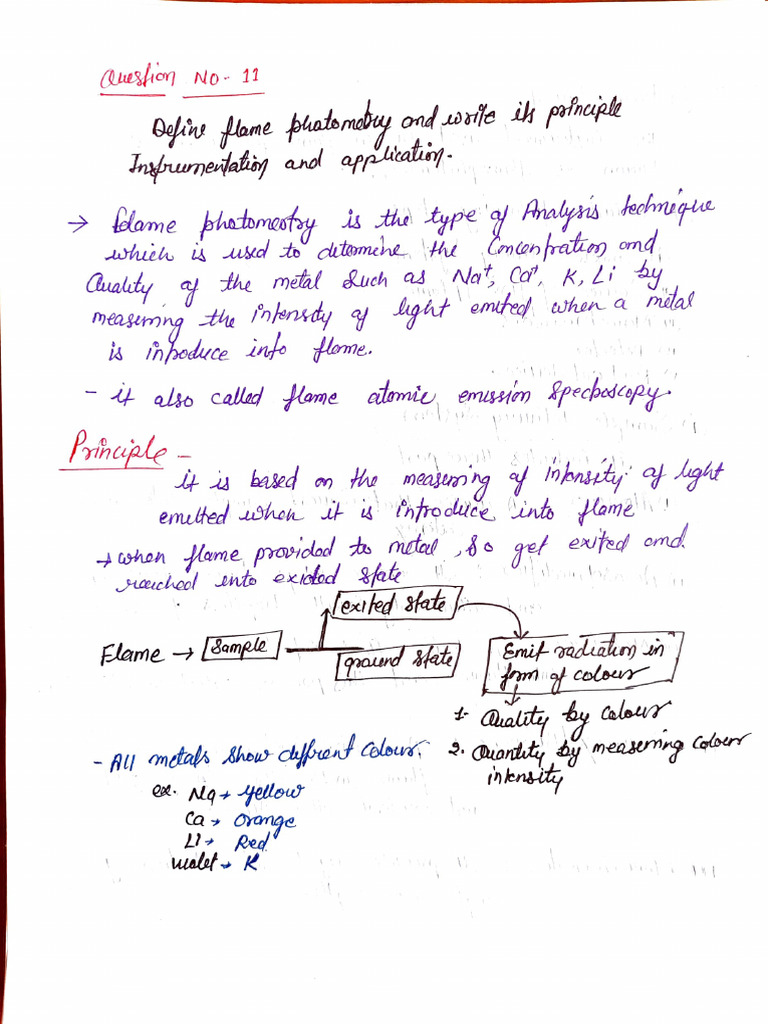 Question No - 11
Define flame photometry and write its principle
Instrumentation and application.
→ flame photomestry is the type of Analysis technique
which is used to determine the Concentration and
Quality of the metal Such as Na⁺, Ca⁺, K, Li by
measerring the intensity of light emitted when a metal
is introduce into flame.
- it also called flame atomic emission Spectroscopy.
Principle -
it is based on the measerring of intensity of light
emitted when it is introduce into flame
→ when flame provided to metal, So get exited and
reached into excited state
exited state
Flame → Sample
ground state
Emit radiation in
form of colour
1. Quality by Colour
2. Quantity by measerring Colour
intensity
- All metals show diffrent Colour.
ex. Na → yellow
Ca → Orange
Li → Red
violet → K